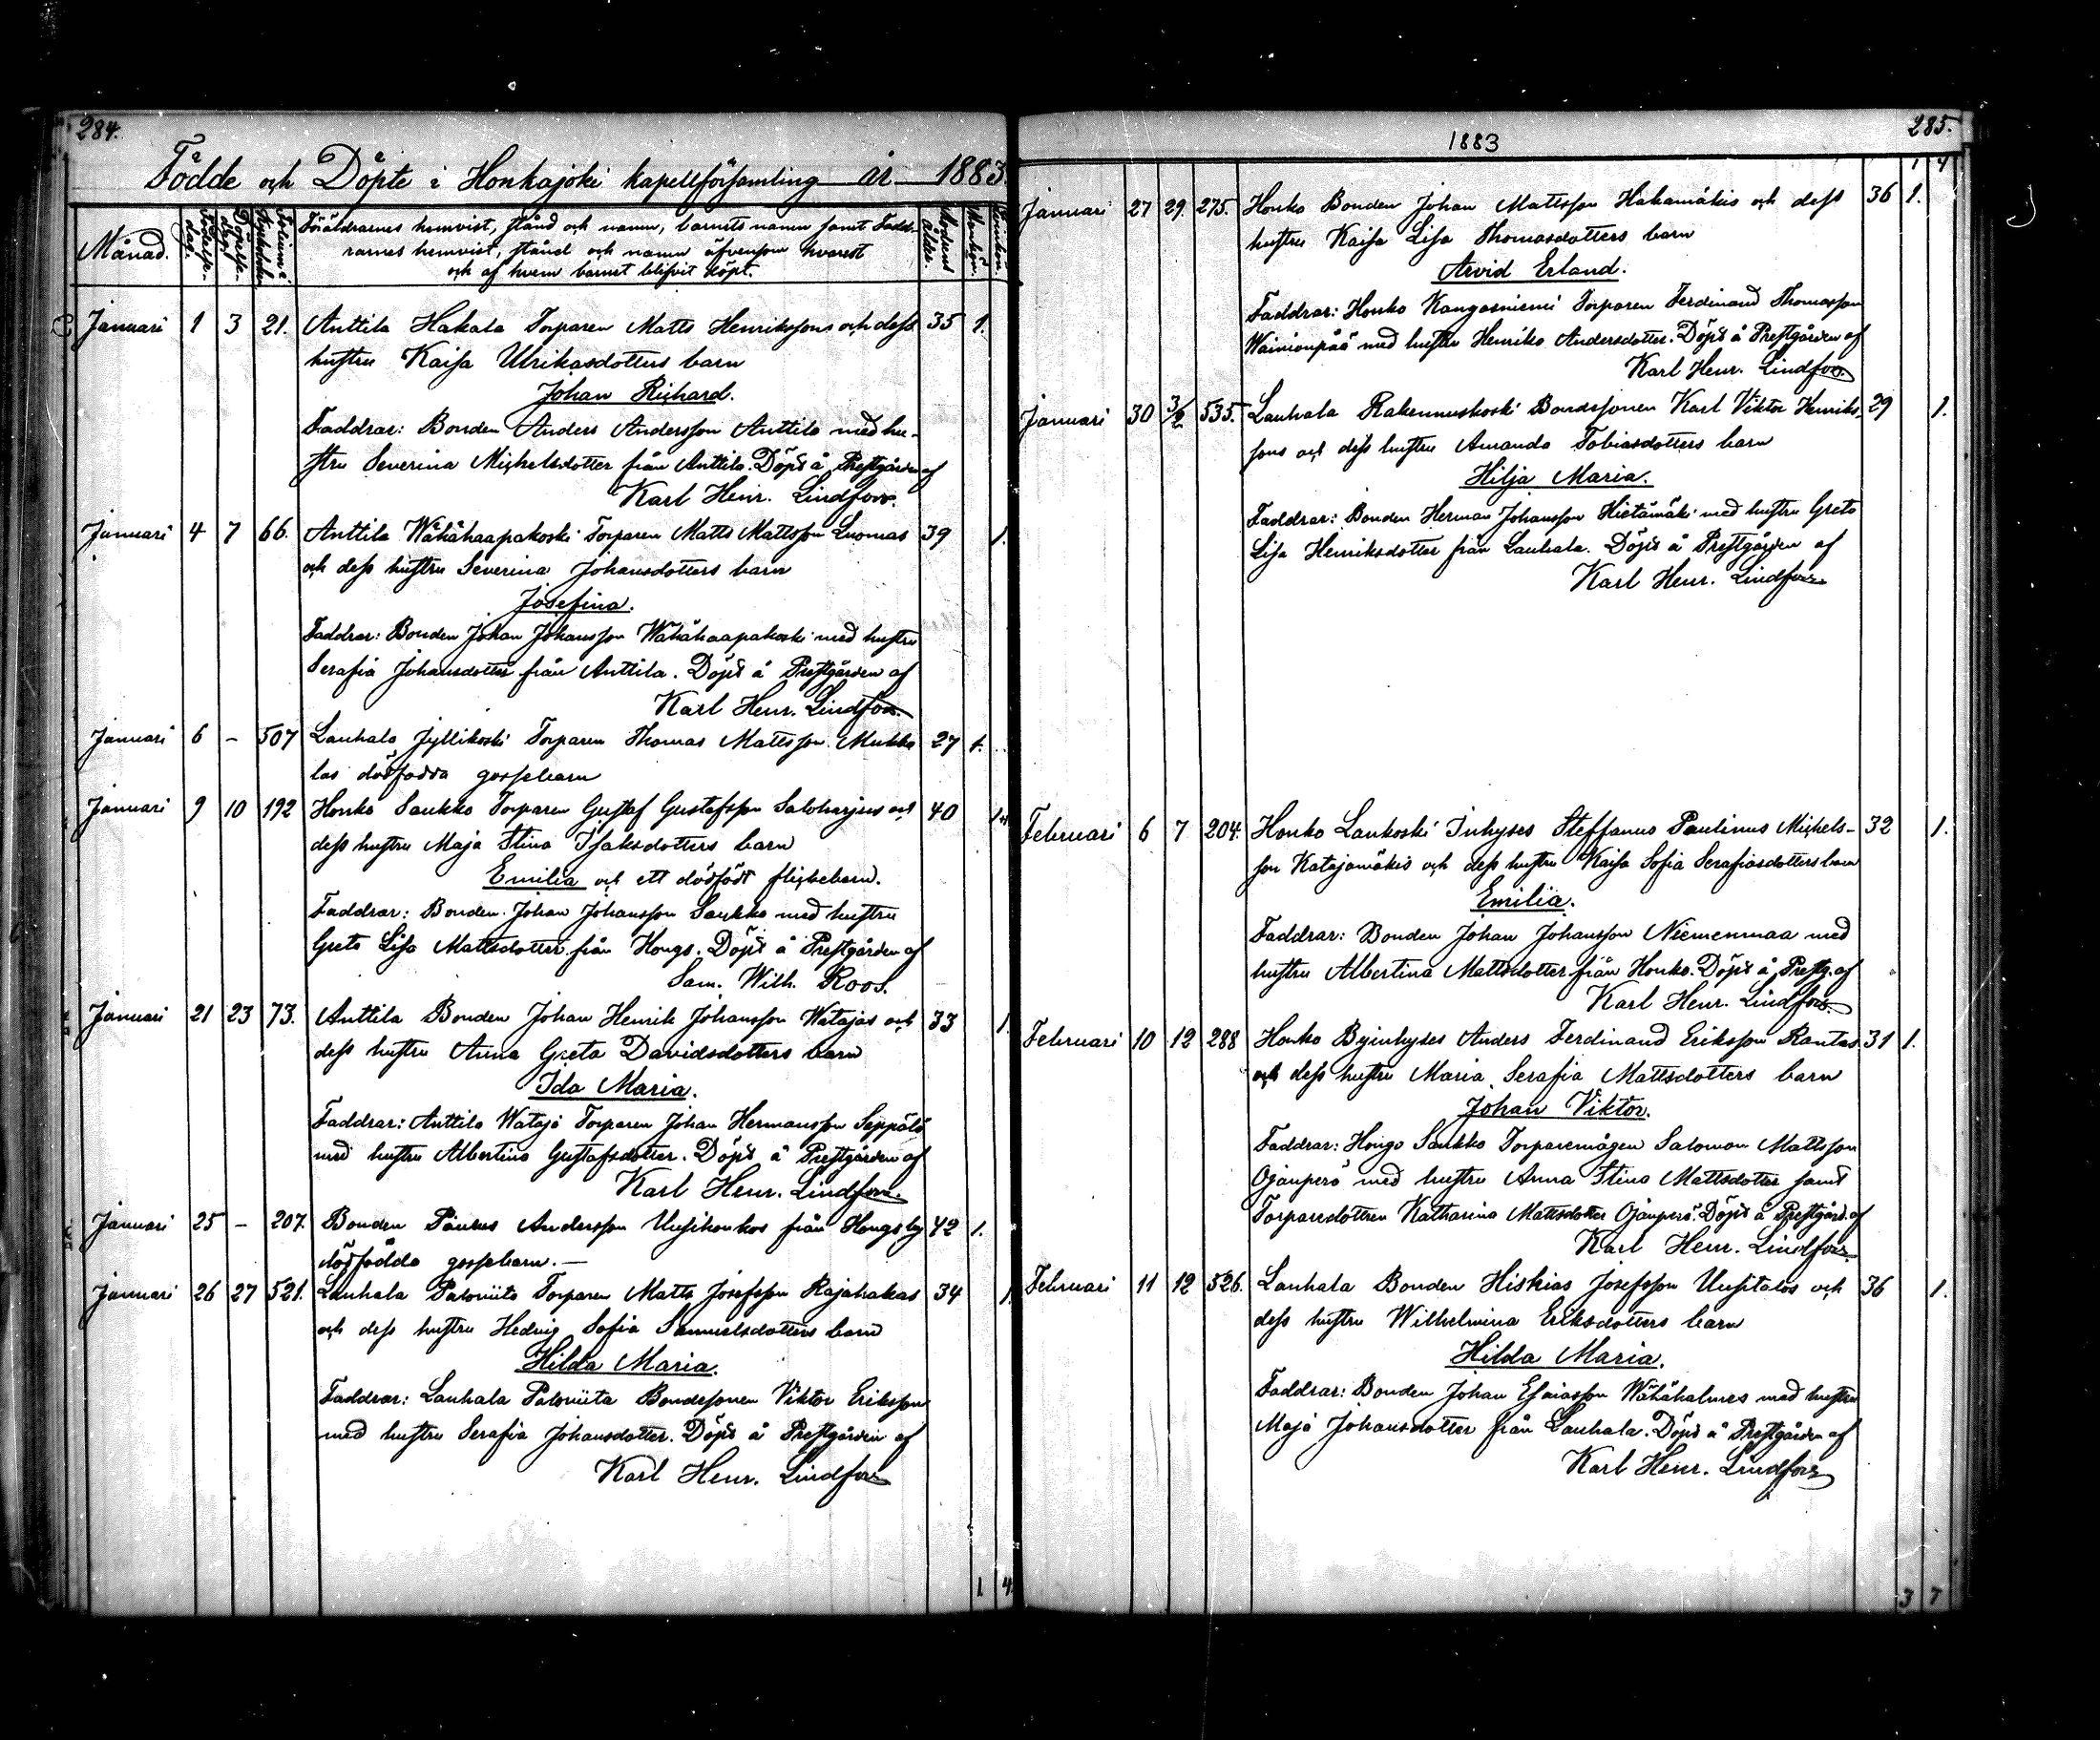 284.
Födde och Döpte i Honkajoki kapellförsamling år 1883.
Månad.
Födelse-
dag.
Döpelse-
dag.
Folium i
Kyrkoboken
Föräldrarnes hemvist, stånd och namn, barnets namn samt Fadd-
rarnes hemvist, stånd och namn äfvensom hvarest
och af hvem barnet blifvit döpt.
Modrens
ålder.
Mankön.
Qvinkön.
Januari 1 3 21. Anttila Hakala Torparen Matts Henrikssons och dess 35 1.
hustru Kaisa Ulrikasdotters barn
Johan Richard.
Faddrar: Bonden Anders Andersson Anttila med hu-
stru Severina Michelsdotter från Anttila. Döpt å Prestgården af
Karl Henr. Lindfors.
Januari 4 7 66. Anttila Wähähaapakoski Torparen Matts Mattsson Luomas 39 1.
och dess hustru Severina Johansdotters barn
Josefina.
Faddrar: Bonden Johan Johansson Wähähaapakoski med hustru
Serafia Johansdotter från Anttila. Döpt å Prestgården af
Karl Henr. Lindfors.
Januari 6 – 507 Lauhala Jyllikoski Torparen Thomas Mattsson Mukka 27 1.
las dödfödda gossebarn
Januari 9 10 192 Honko Saukko Torparen Gustaf Gustafsson Saloharjus och 40 1
dess hustru Maja Stina Isaksdotters barn
Emilia och ett dödfödt flickebarn.
Faddrar: Bonden Johan Johansson Saukko med hustru
Greta Lisa Mattsdotter från Hongo. Döpt å Prestgården af
Sam. Wilh. Roos.
Januari 21 23 73. Anttila Bonden Johan Henrik Johansson Watajas och 33 1.
dess hustru Anna Greta Davidsdotters barn
Ida Maria.
Faddrar: Anttila Wataja Torparen Johan Hermansson Seppälä
med hustru Albertina Gustafsdotter. Döpt å Prestgården af
Karl Henr. Lindfors.
Januari 25 – 207. Bonden Paulus Andersson Uusihonkos från Hongo by 42 1.
dödfödda gossebarn. –
Januari 26 27 521. Lauhala Paloniita Torparen Matts Josefsson Rajahakas 34 1.
och dess hustru Hedvig Sofia Samuelsdotters barn
Hilda Maria.
Faddrar: Lauhala Paloniita Bondesonen Viktor Eriksson
med hustru Serafia Johansdotter. Döpt å Prestgården af
Karl Henr. Lindfors
1. 4.
1883
285.
1 4
Januari 27 29. 275. Honko Bonden Johan Mattsson Hakamäkis och dess 36 1.
hustru Kaisa Lisa Thomasdotters barn
Arvid Erland.
Faddrar: Honko Kangasniemi Torparen Ferdinand Thomasson
Wainionpää med hustru Henrika Andersdotter. Döpt å Prestgården af
Karl Henr. Lindfors.
Januari 30 3/2 535. Lauhala Rakennuskoski Bondesonen Karl Viktor Henriks 29 1.
sons och dess hustru Amanda Tobiasdotters barn
Hilja Maria.
Faddrar: Bonden Herman Johansson Hietamäki med hustru Greta
Lisa Henriksdotter från Lauhala. Döpt å Prestgården af
Karl Henr. Lindfors
Februari 6 7 204. Honko Lankoski Inhyses Steffanus Paulinus Michels- 32 1.
son Katajamäkis och dess hustru Kaisa Sofia Serafiasdotters barn
Emilia.
Faddrar: Bonden Johan Johansson Niemenmaa med
hustru Albertina Mattsdotter från Honko. Döpt å Prestg. af
Karl Henr. Lindfors.
Februari 10 12 288 Honko Byinhyses Anders Ferdinand Eriksson Rantas 31 1.
och dess hustru Maria Serafia Mattsdotters barn
Johan Viktor.
Faddrar: Hongo Saukko Torparemågen Salomon Mattsson
Ojanperä med hustru Anna Stina Mattsdotter samt
Torparedottren Katharina Mattsdotter Ojanperä. Döpt å Prestgård. af
Karl Henr. Lindfors
Februari 11 12 526. Lauhala Bonden Hiskias Josefsson Uusitalos och 36 1.
dess hustru Wilhelmina Eriksdotters barn
Hilda Maria.
Faddrar: Bonden Johan Esaiasson Wähähalmes med hustru
Maja Johansdotter från Lauhala. Döpt å Prestgården af
Karl Henr. Lindfors
3 7